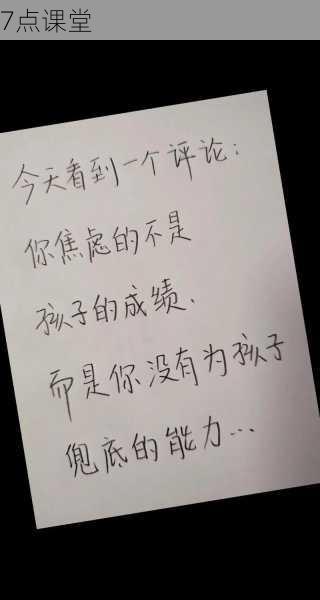 7点课堂
今天看到一个评论：
你焦虑的不是
孩子的成绩、
而是你没有为孩子
兜底的能力…